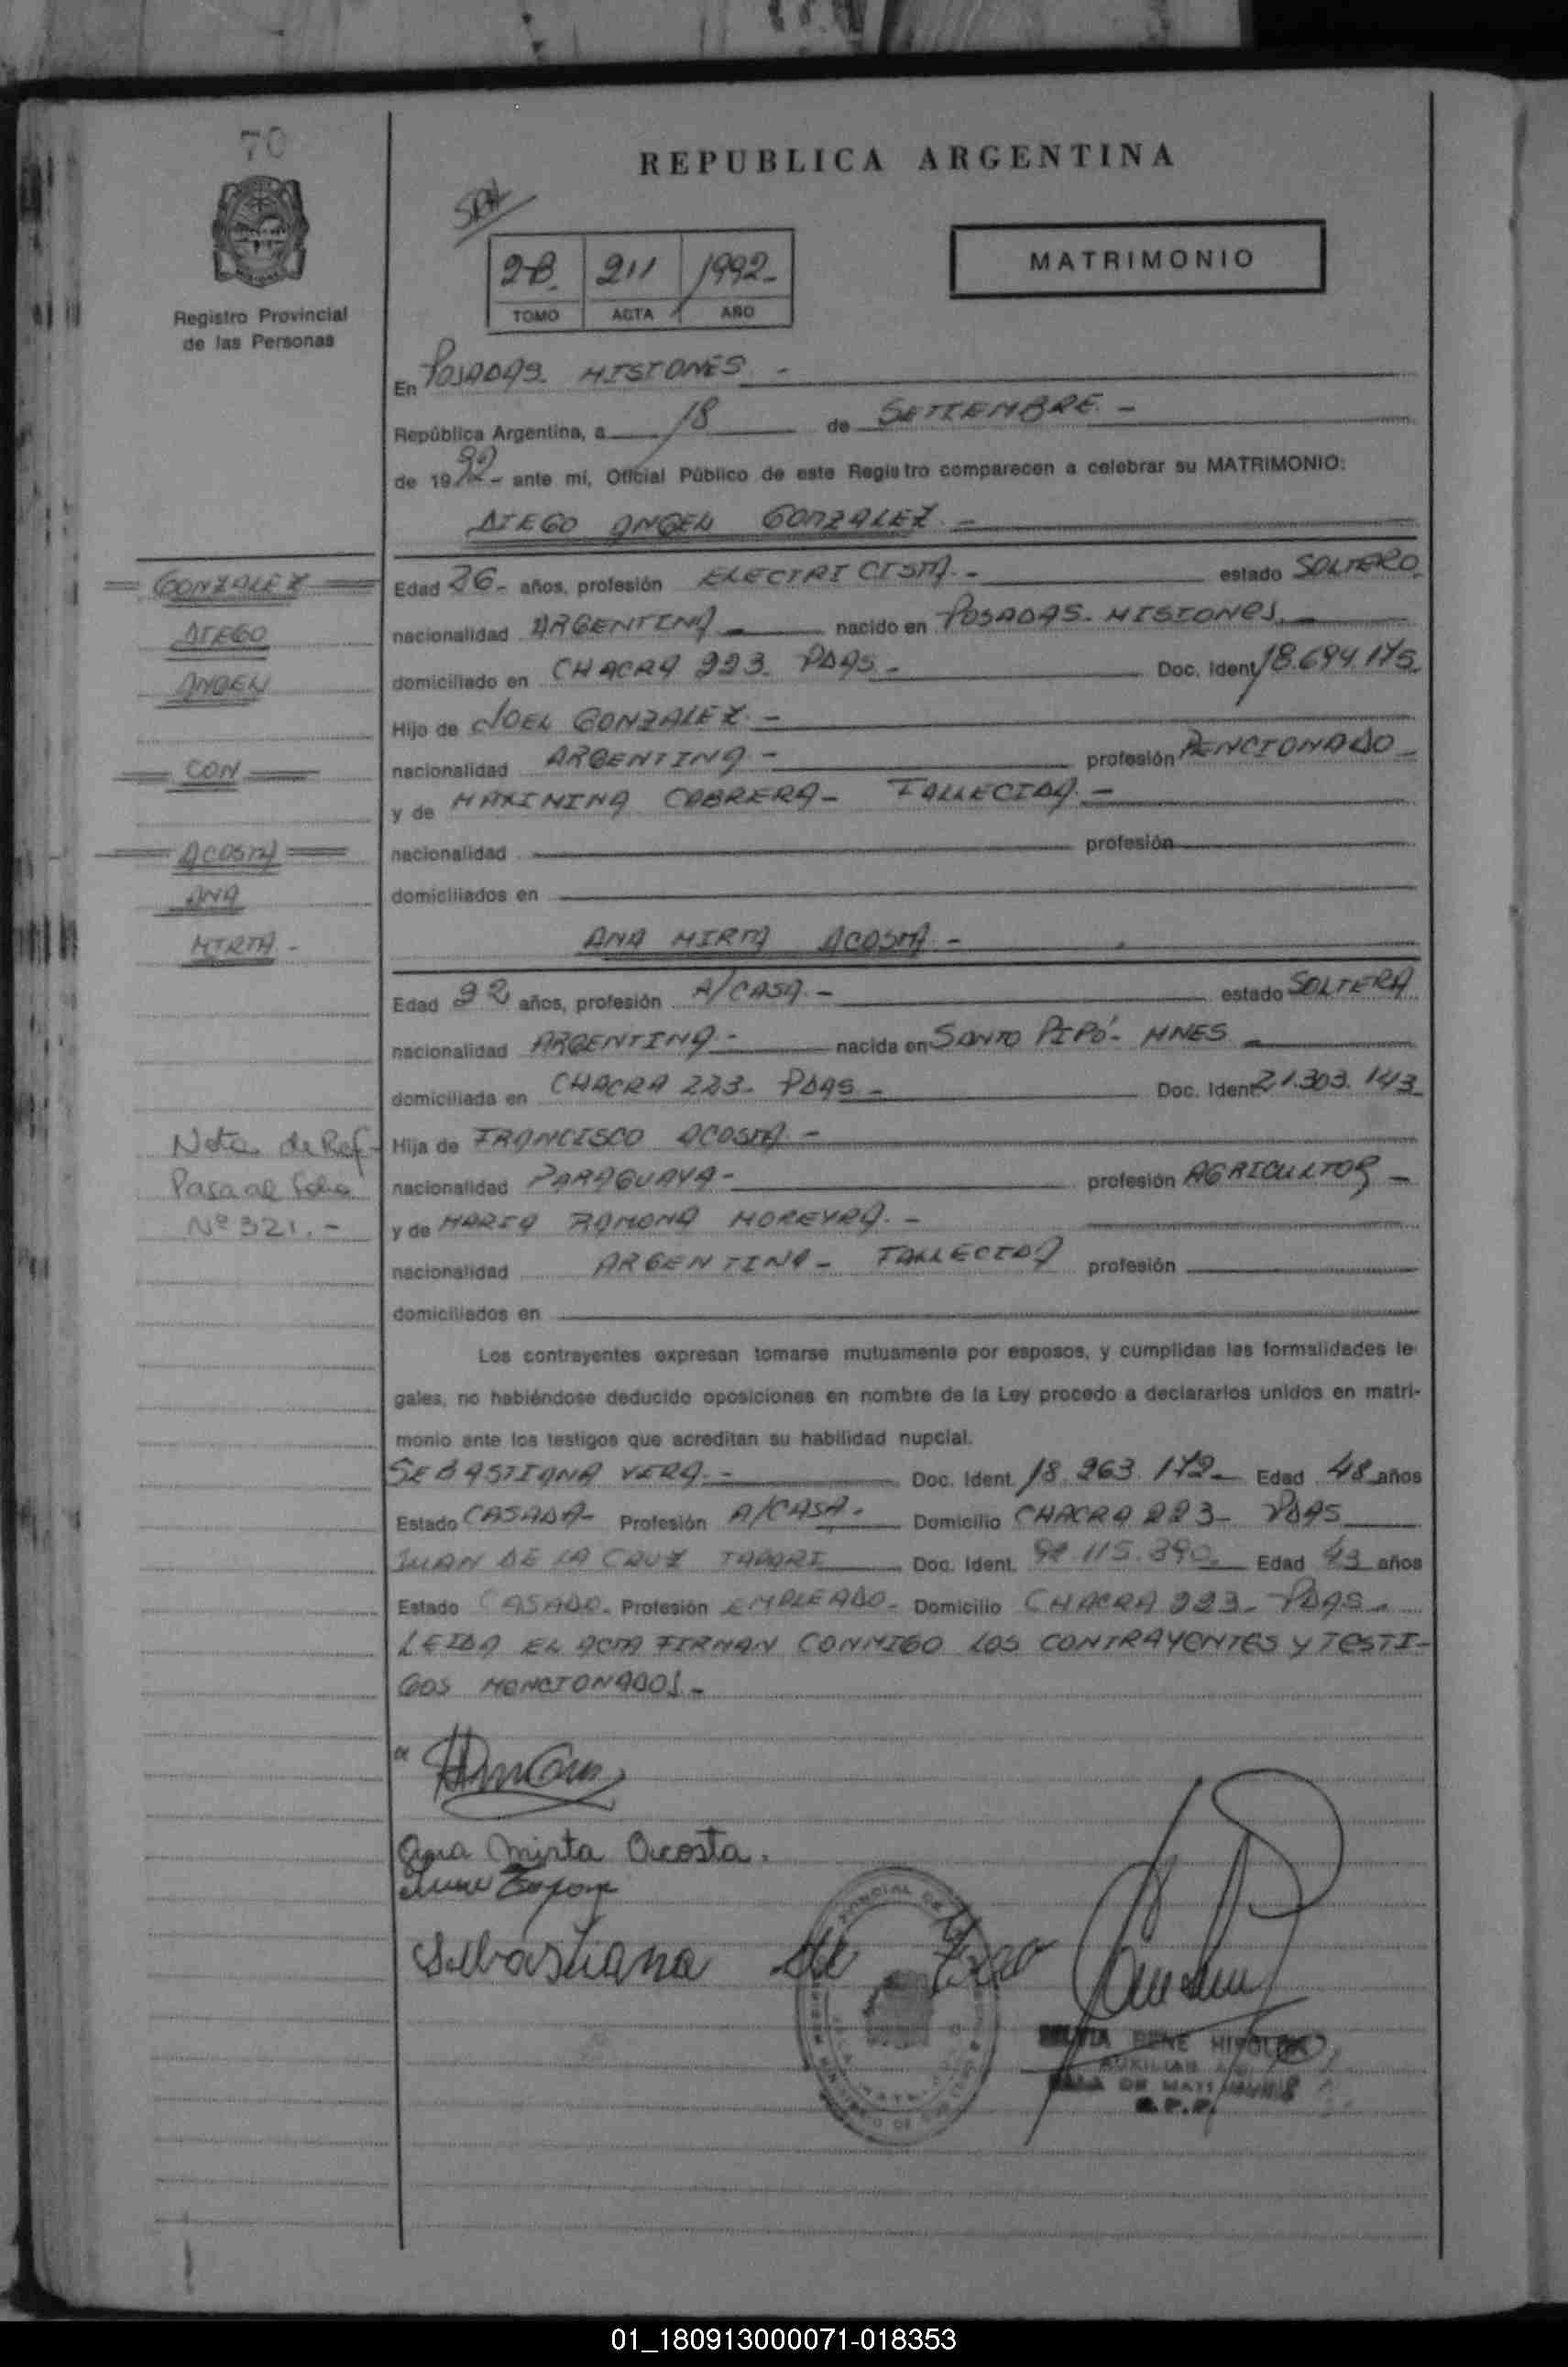 70
REPUBLICA ARGENTINA
2B. 211 1992-
TOMO ACTA AÑO
MATRIMONIO
Registro Provincial
de las Personas
En POSADAS MISIONES -
República Argentina, a 18 de SETIEMBRE -
de 1992- ante mí, Oficial Público de este Registro comparecen a celebrar su MATRIMONIO:
DIEGO ANGEL GONZALEZ -
GONZALEZ
DIEGO
ANGEL
CON
ACOSTA
ANA
MIRTA -
Edad 26- años, profesión ELECTRICISTA - estado SOLTERO
nacionalidad ARGENTINA - nacido en POSADAS - MISIONES -
domiciliado en CHACRA 223. PDAS - Doc. Ident. 18.694.175
Hijo de JOEL GONZALEZ -
nacionalidad ARGENTINA - profesión PENCIONADO -
y de MAXIMINA CABRERA - FALLECIDA -
nacionalidad profesión
domiciliados en
ANA MIRTA ACOSTA -
Edad 22 años, profesión A/CASA - estado SOLTERA
nacionalidad ARGENTINA - nacida en SANTO PIPÓ - MNES -
domiciliada en CHACRA 223 - PDAS - Doc. Ident. 21.303.143
Hija de FRANCISCO ACOSTA -
nacionalidad PARAGUAYA - profesión AGRICULTOR -
y de MARIA RAMONA MOREYRA. -
nacionalidad ARGENTINA - FALLECIDA profesión
domiciliados en
Nota de Ref-
Pasa al folio
Nº 321.-
Los contrayentes expresan tomarse mutuamente por esposos, y cumplidas las formalidades le
gales, no habiéndose deducido oposiciones en nombre de la Ley procedo a declararlos unidos en matri-
monio ante los testigos que acreditan su habilidad nupcial.
SEBASTIANA VERA. - Doc. Ident. 18.263.172- Edad 48 años
Estado CASADA - Profesión A/CASA - Domicilio CHACRA 223 - PDAS
JUAN DE LA CRUZ Doc. Ident. 92.115.390. Edad 43 años
Estado CASADO - Profesión EMPLEADO - Domicilio CHACRA 223 - PDAS -
LEIDA EL ACTA FIRMAN CONMIGO LOS CONTRAYENTES Y TESTI-
GOS MENCIONADOS -
Ana Mirta Acosta.
Sebastiana de
RENE HIPOLITO
AUXILIAR
SALA DE MATRIMONIOS
R.P.P.
01_180913000071-018353